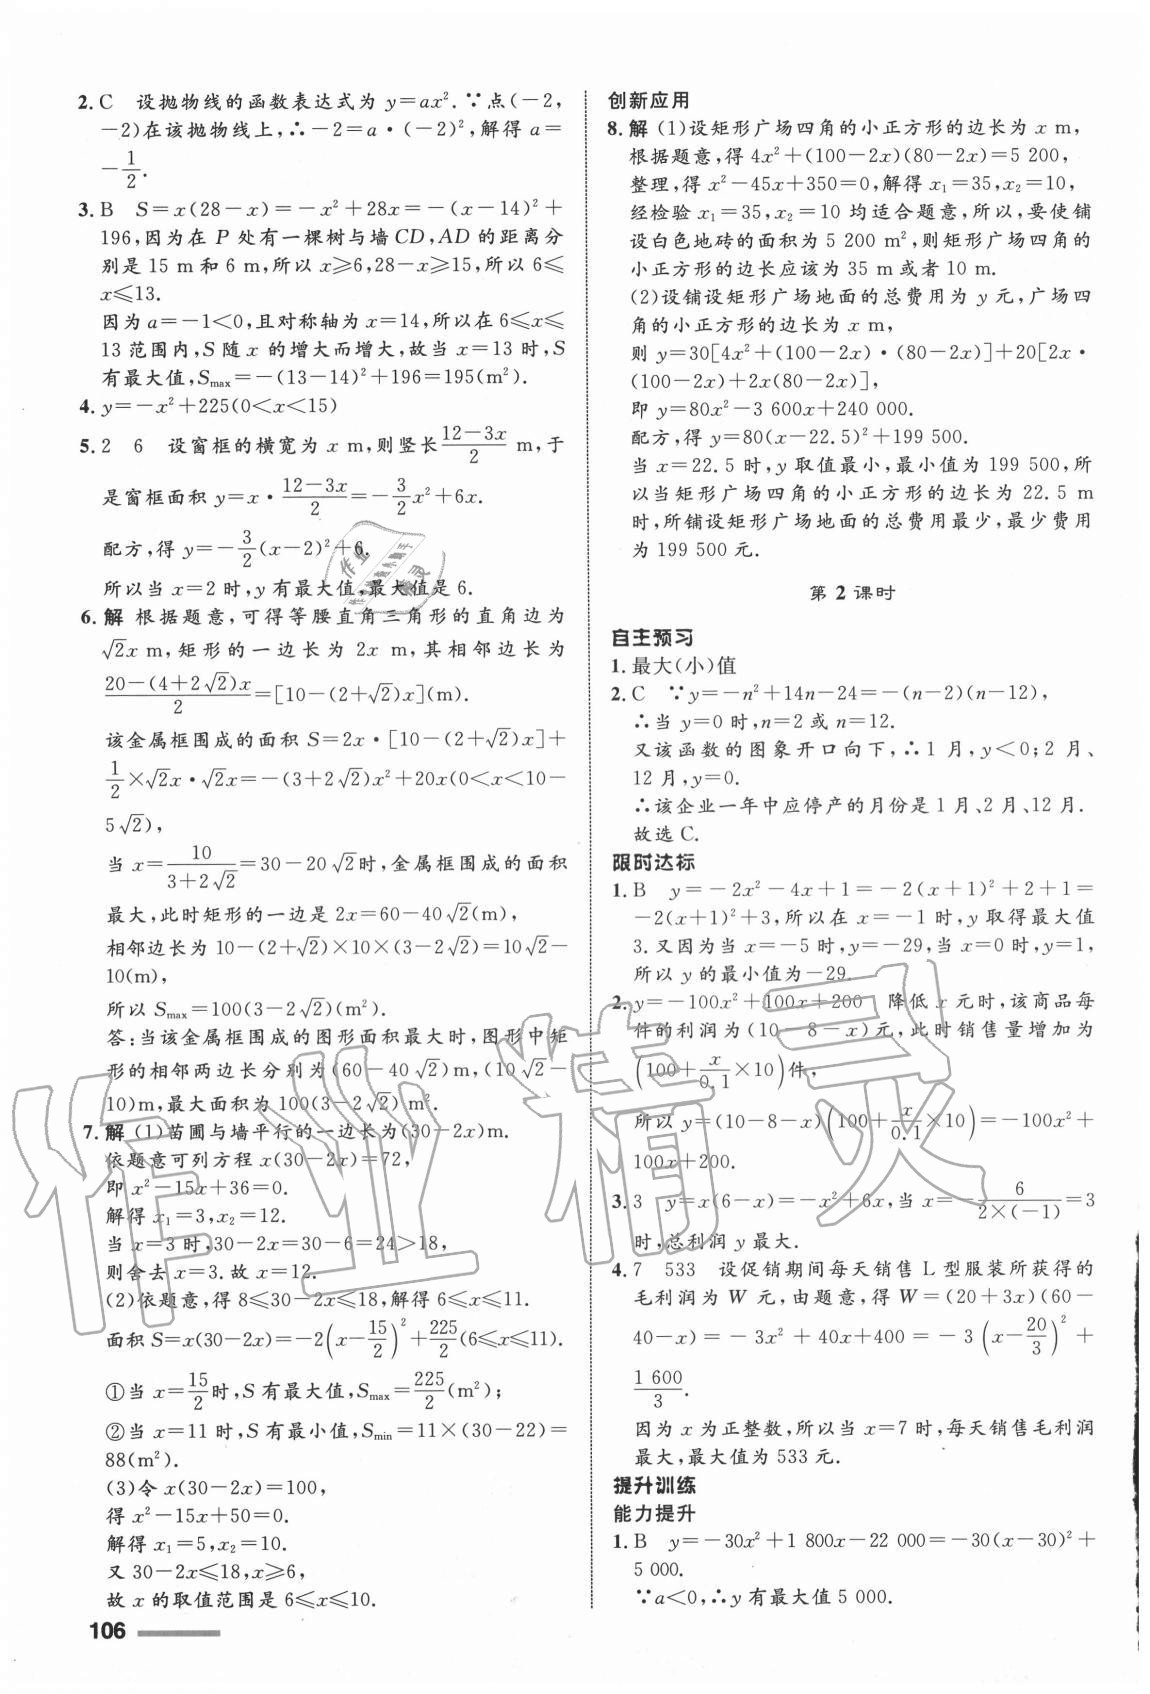 2. C　设抛物线的函数表达式为 y=ax². ∵点(-2,
-2)在该抛物线上,∴-2=a·(-2)²,解得 a=
-1/2.
3. B　S=x(28-x)=-x²+28x=-(x-14)²+
196,因为在 P 处有一棵树与墙 CD,AD 的距离分
别是 15 m 和 6 m,所以 x≥6,28-x≥15,所以 6≤
x≤13.
因为 a=-1<0,且对称轴为 x=14,所以在 6≤x≤
13 范围内,S 随 x 的增大而增大,故当 x=13 时,S
有最大值,Smax=-(13-14)²+196=195(m²).
4. y=-x²+225(0<x<15)
5. 2　6　设窗框的横宽为 x m,则竖长(12-3x)/2 m,于
是窗框面积 y=x·(12-3x)/2=-3/2x²+6x.
配方,得 y=-3/2(x-2)²+6.
所以当 x=2 时,y 有最大值,最大值是 6.
6. 解 根据题意,可得等腰直角三角形的直角边为
√2x m,矩形的一边长为 2x m,其相邻边长为
(20-(4+2√2)x)/2=[10-(2+√2)x](m).
该金属框围成的面积 S=2x·[10-(2+√2)x]+
1/2×√2x·√2x=-(3+2√2)x²+20x(0<x<10-
5√2),
当 x=10/(3+2√2)=30-20√2时,金属框围成的面积
最大,此时矩形的一边是 2x=60-40√2(m),
相邻边长为 10-(2+√2)×10×(3-2√2)=10√2-
10(m),
所以 Smax=100(3-2√2)(m²).
答:当该金属框围成的图形面积最大时,图形中矩
形的相邻两边长分别为(60-40√2)m,(10√2-
10)m,最大面积为 100(3-2√2) m².
7. 解 (1)苗圃与墙平行的一边长为(30-2x)m.
依题意可列方程 x(30-2x)=72,
即 x²-15x+36=0.
解得 x₁=3,x₂=12.
当 x=3 时,30-2x=30-6=24>18,
则舍去 x=3.故 x=12.
(2)依题意,得 8≤30-2x≤18,解得 6≤x≤11.
面积 S=x(30-2x)=-2(x-15/2)²+225/2(6≤x≤11).
①当 x=15/2时,S 有最大值,Smax=225/2(m²);
②当 x=11 时,S 有最小值,Smin=11×(30-22)=
88(m²).
(3)令 x(30-2x)=100,
得 x²-15x+50=0.
解得 x₁=5,x₂=10.
又 30-2x≤18,x≥6,
故 x 的取值范围是 6≤x≤10.
106
创新应用
8. 解 (1)设矩形广场四角的小正方形的边长为 x m,
根据题意,得 4x²+(100-2x)(80-2x)=5 200,
整理,得 x²-45x+350=0,解得 x₁=35,x₂=10,
经检验 x₁=35,x₂=10 均适合题意,所以,要使铺
设白色地砖的面积为 5 200 m²,则矩形广场四角的
小正方形的边长应该为 35 m或者 10 m.
(2)设铺设矩形广场地面的总费用为 y 元,广场四
角的小正方形的边长为 x m,
则 y=30[4x²+(100-2x)·(80-2x)]+20[2x·
(100-2x)+2x(80-2x)],
即 y=80x²-3 600x+240 000.
配方,得 y=80(x-22.5)²+199 500.
当 x=22.5 时,y 取值最小,最小值为 199 500,所
以当矩形广场四角的小正方形的边长为 22.5 m
时,所铺设矩形广场地面的总费用最少,最少费用
为 199 500 元.
第 2 课时
自主预习
1. 最大(小)值
2. C　∵y=-n²+14n-24=-(n-2)(n-12),
∴当 y=0 时,n=2 或 n=12.
又该函数的图象开口向下,∴1 月,y<0;2 月、
12 月,y=0.
∴该企业一年中应停产的月份是 1 月、2 月、12 月.
故选 C.
限时达标
1. B　y=-2x²-4x+1=-2(x+1)²+2+1=
-2(x+1)²+3,所以在 x=-1 时,y 取得最大值
3.又因为当 x=-5 时,y=-29,当 x=0时,y=1,
所以 y 的最小值为-29.
2. y=-100x²+100x+200　降低 x 元时,该商品每
件的利润为(10-8-x)元,此时销售量增加为
(100+x/0.1×10)件,
所以 y=(10-8-x)(100+x/0.1×10)=-100x²+
100x+200.
3. 3　y=x(6-x)=-x²+6x,当 x=-6/(2×(-1))=3
时,总利润 y 最大.
4. 7　533　设促销期间每天销售 L 型服装所获得的
毛利润为 W 元,由题意,得 W=(20+3x)(60-
40-x)=-3x²+40x+400=-3(x-20/3)²+
1 600/3.
因为 x 为正整数,所以当 x=7 时,每天销售毛利润
最大,最大值为 533 元.
提升训练
能力提升
1. B　y=-30x²+1 800x-22 000=-30(x-30)²+
5 000.
∵a<0,∴y 有最大值 5 000.
作业精灵